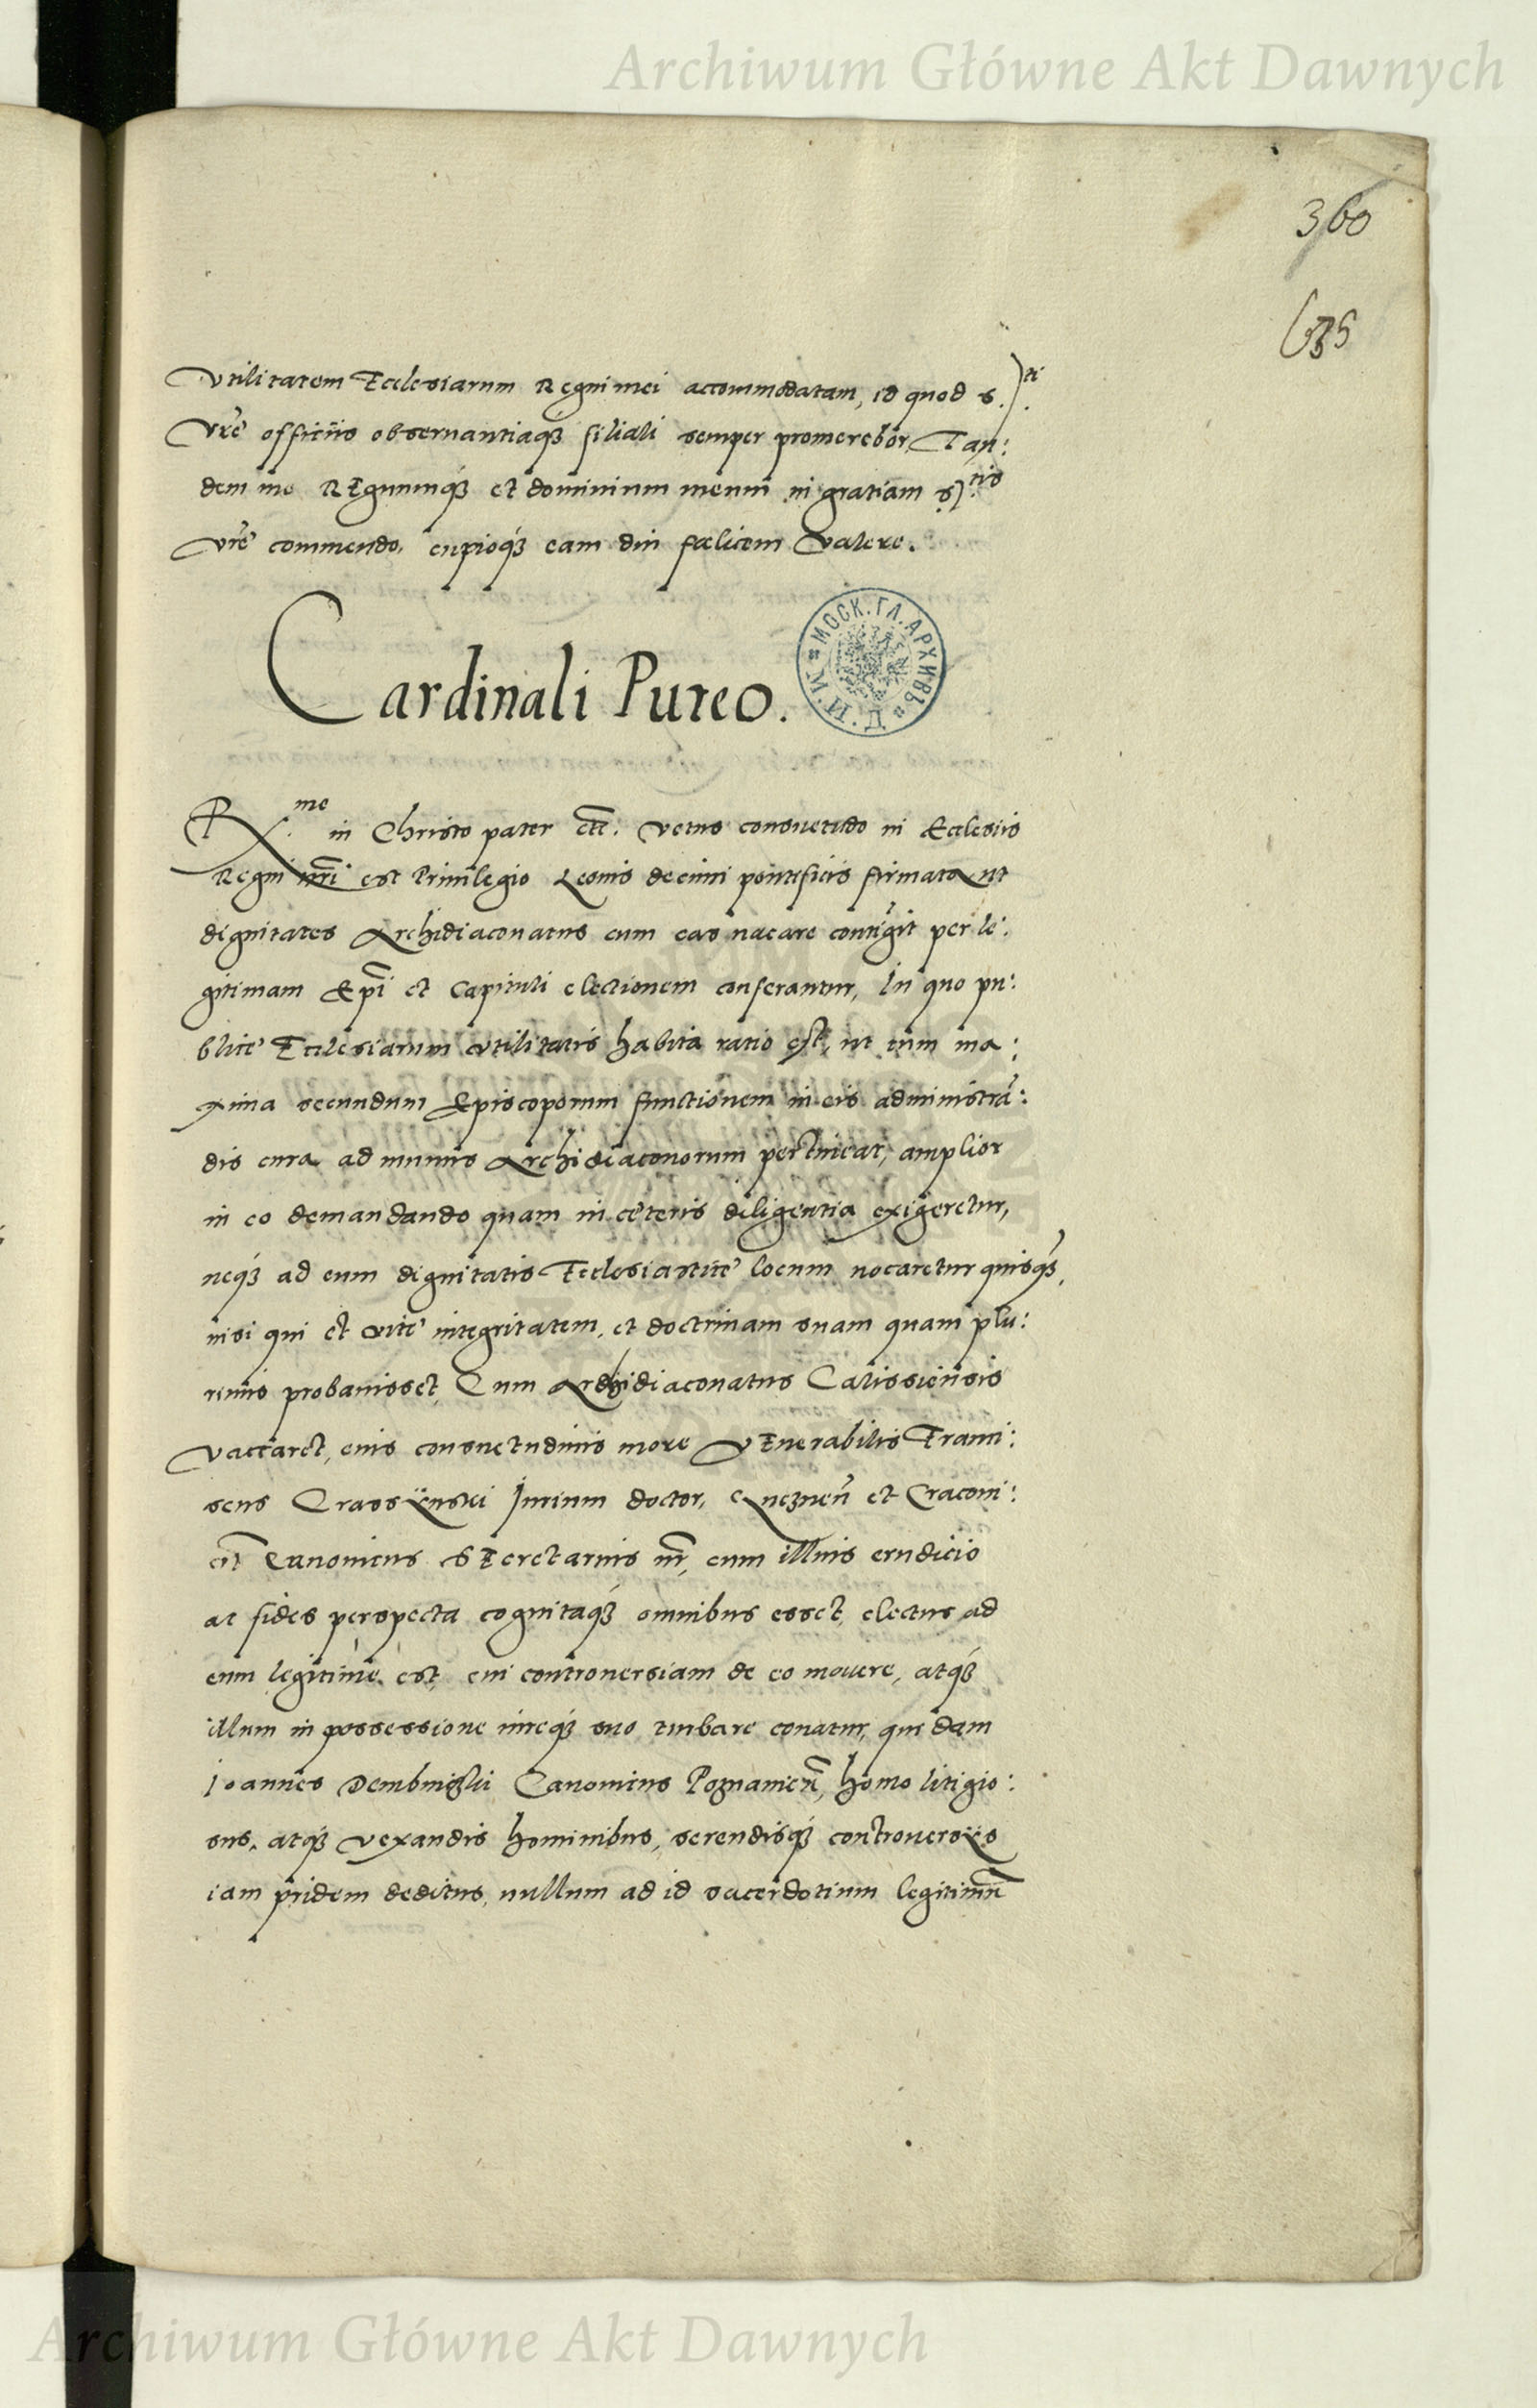 Archiwum Główne Akt Dawnych
360
635
Vtilitatem Ecclesiarum Regni mei accommodatam, id quod S.ti
Vrẽ officiis obseruantiaq́ꝫ filiali semper promerebor, Tan:
dem me REgnumq́ꝫ et dominium meum in gratiam Stis
Vrẽ commendo, cupioq́ꝫ eam diu fœlicem Valere.
Cardinali Puteo.
МОСК. ГЛ. АРХИВЪ М. И. Д.
Rme in Christo pater etc̃: Vetus consuetudo in Ecclesiis
Regni nr̃i est Priuilegio Leonis decimi pontificis firmata ut
dignitates Archidiaconatus cum eas uacare contigit per le:
gitimam Ep̃i et Capituli electionem conferantur, In quo pu:
blicę Ecclesiarum vtilitatis habita ratio est, ut cum ma:
xima secundum Episcoporum functionem in eis administrã:
dis cura ad munus Archidiaconorum pertineat, amplior
in eo demandando quam in cęteris diligentia exigeretur,
neq́ꝫ ad eum dignitatis Ecclesiasticę locum uocaretur quisq́ꝫ,
nisi qui et vitę integritatem, et doctrinam suam quam plu:
rimis probauisset, Cum Archidiaconatus Calissieñsis
Vaccaret, eius consuetudinis more VEnerabilis Franci:
scus Crassÿnski Jurium doctor, Gnezneñ et Cracoui:
eñ Canonicus SEcretarius nr̃, cum illius erudicio
ac fides perspecta cognitaq́ꝫ omnibus esset, electus ad
eum legitime est, cui controuersiam de eo mouere, atq́ꝫ
illum in possessione iureq́ꝫ suo turbare conatur, quidam
Joannes Dembinskii Canonicus Poznanieñ, homo litigio:
sus, atq́ꝫ vexandis hominibus, serendisq́ꝫ controuersÿs
iam pridem deditus, nullum ad id sacerdotium legitimũ
Archiwum Główne Akt Dawnych